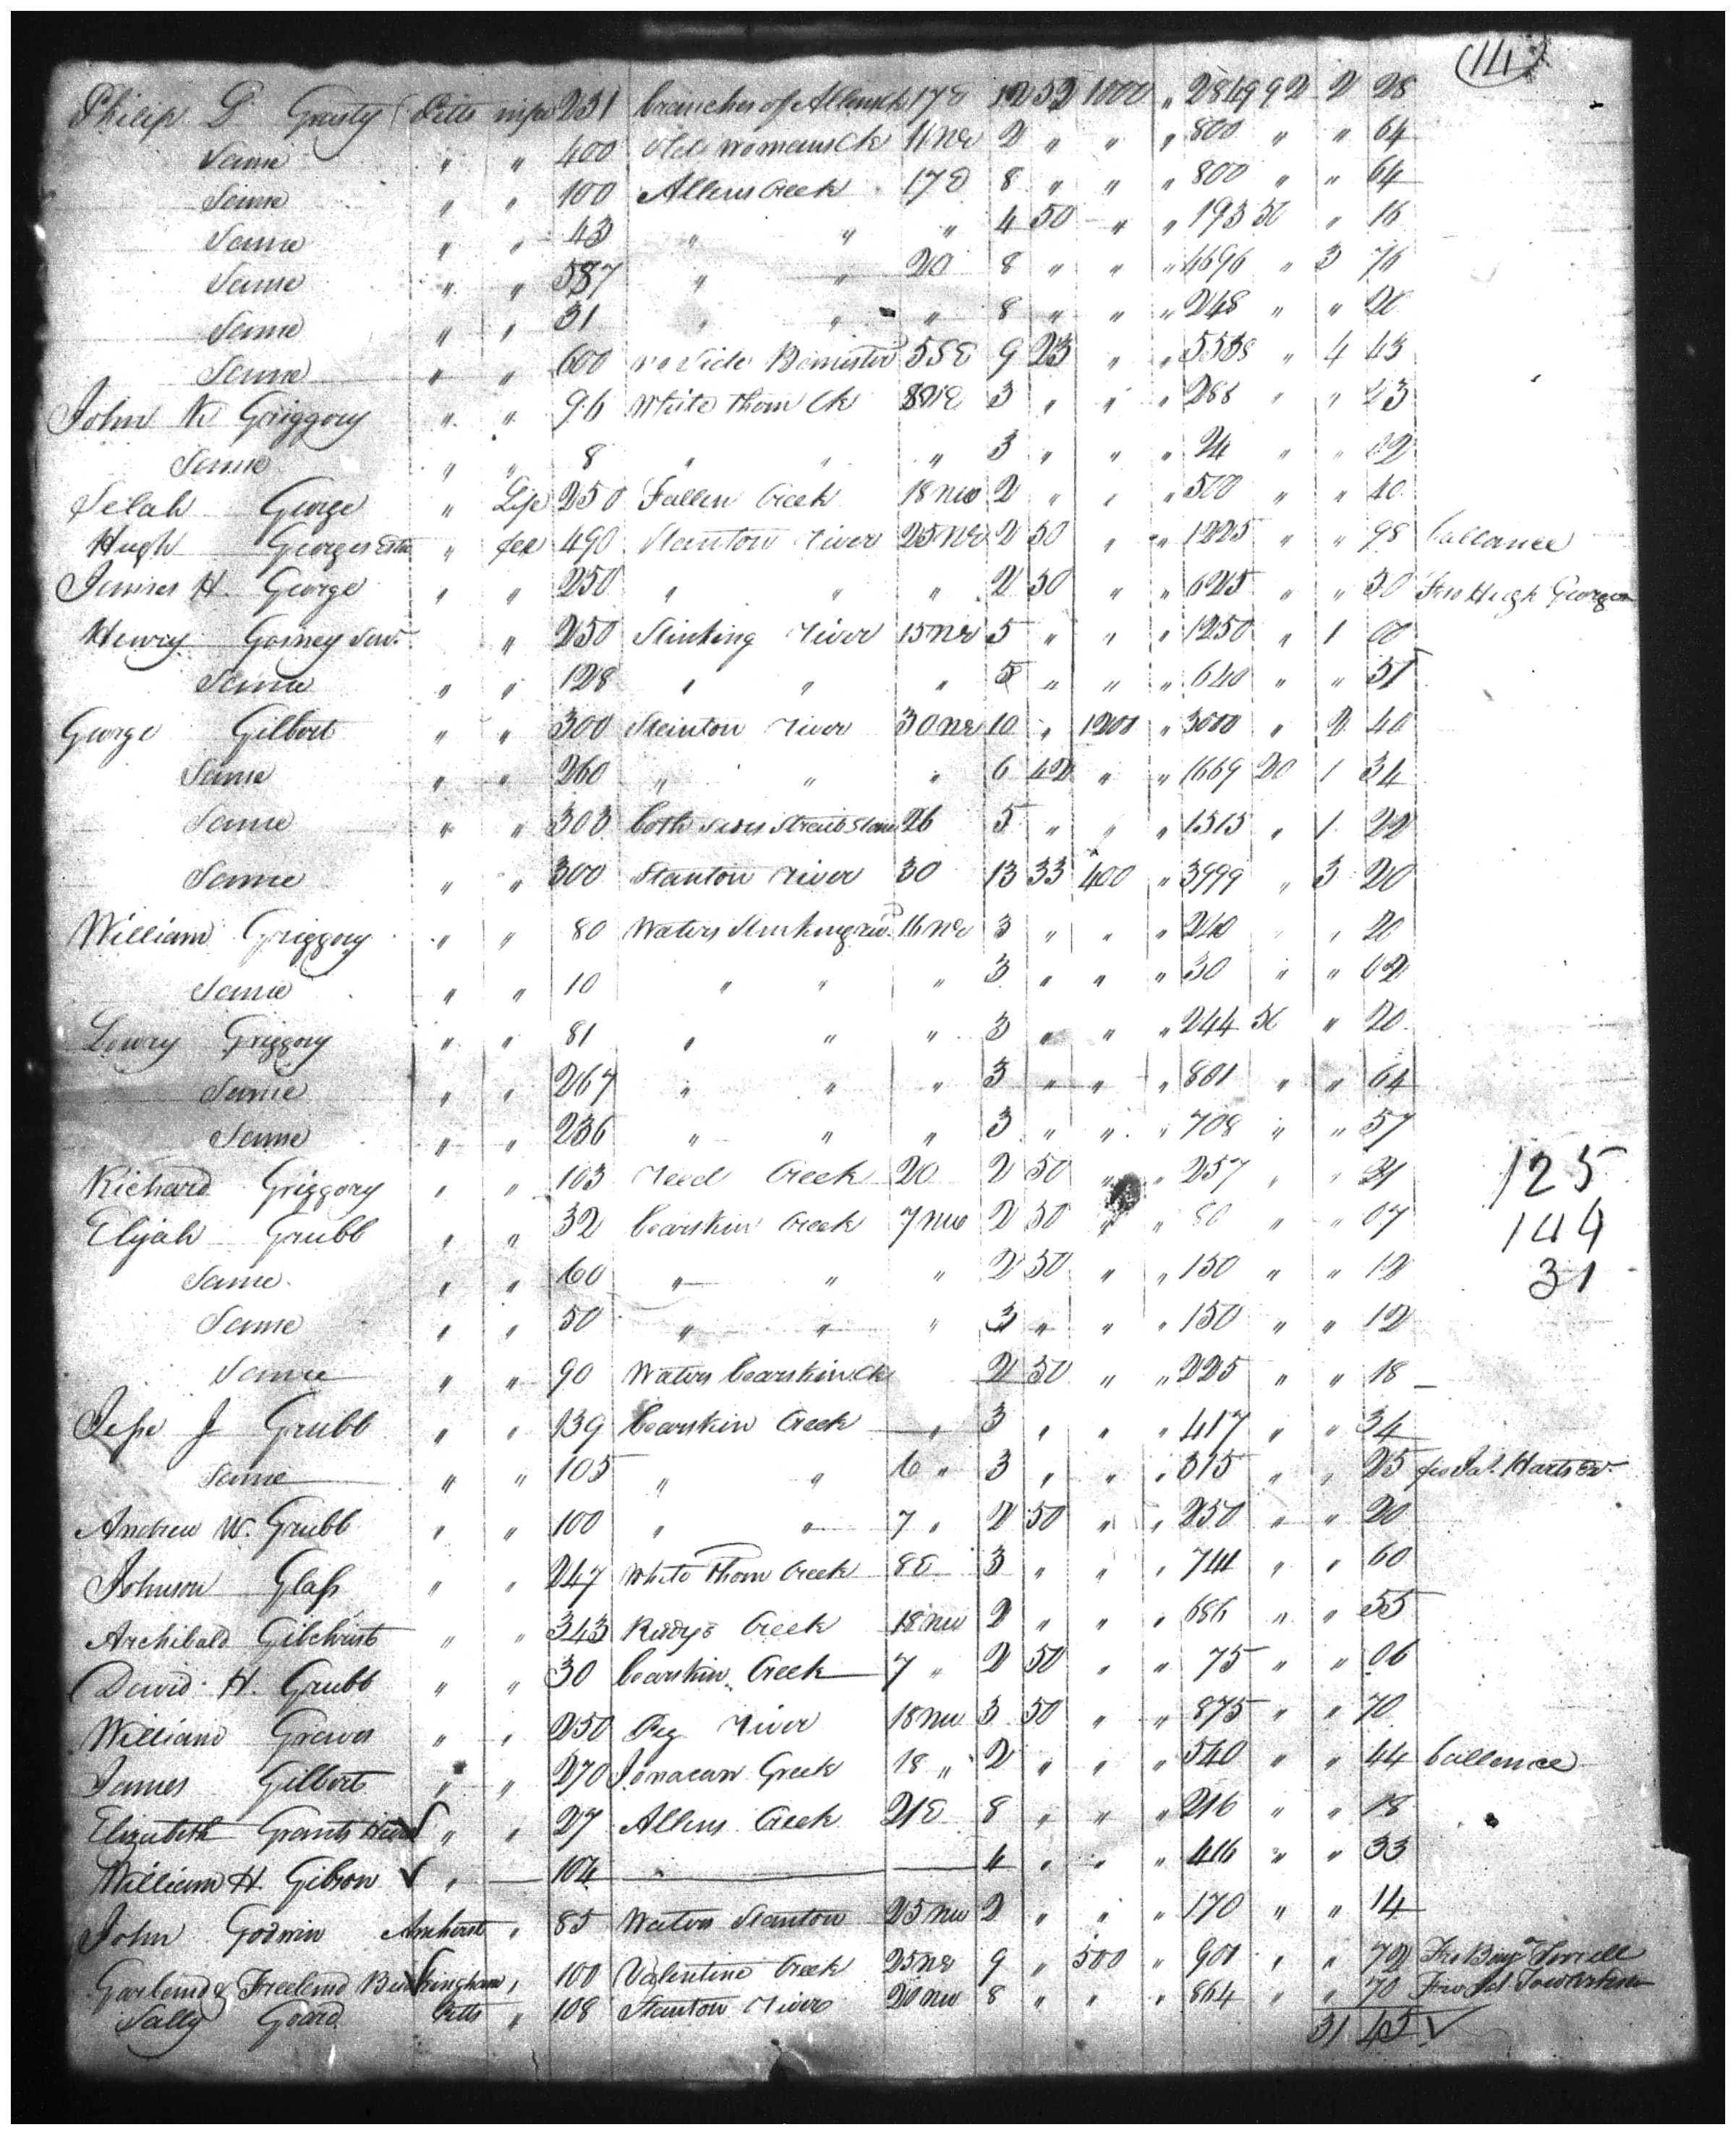 (14)
Philip G Grasty Pitts in fee 231 branches of Allens Ck 17 E 12 32 1000 " 2849 92 2 28
Same " " 400 Old womans Ck 11 NE 2 " " " 800 " " 64
Same " " 100 Allens Creek 17 E 8 " " " 800 " " 64
Same " " 43 " " " 4 50 " " 193 50 " 16
Same " " 587 " " 20 8 " " " 4696 " 3 76
Same " " 31 " " " 8 " " " 248 " " 20
Same " " 600 no Side Bannister 35 E 9 23 " " 5538 " 4 43
John W Griggory " " 96 White Thorn Ck 8 NE 3 " " " 288 " " 23
Same " " 8 " " " 3 " " " 24 " " 02
Selah George " Life 250 Fallen Creek 18 NW 2 " " " 500 " " 40
Hugh Georges Este " fee 490 Stanton river 25 NE 2 50 " " 1225 " " 98 ballance
James H. George " " 250 " " " 2 50 " " 625 " " 50 Fro Hugh George
Henry Gosney Senr. " 250 Stinking river 15 NE 5 " " " 1250 " 1 00
Same " " 128 " " " 5 " " " 640 " " 51
George Gilbert " " 300 Stanton river 30 NE 10 " 1200 " 3000 " 2 40
Same " " 260 " " " 6 42 " " 1669 20 1 34
Same " " 303 both sides Straitstone 26 5 " " " 1515 " 1 22
Same " " 300 Stanton river 30 13 33 400 " 3999 " 3 20
William Griggory " " 80 Waters Stinking riv 16 NE 3 " " " 240 " " 20
Same " " 10 " " " 3 " " " 30 " " 02
Lowry Griggory " " 81 " " " 3 " " " 244 50 " 20
Same " " 267 " " " 3 " " " 801 " " 64
Same " " 236 " " " 3 " " " 708 " " 57
Richard Griggory " " 103 reed Creek 20 2 50 " " 257 " " 21
125
Elijah Grubb " " 32 bearskin Creek 7 NW 2 50 " " 80 " " 07
144
Same " " 60 " " " 2 50 " " 150 " " 12
31
Same " " 50 " " " 3 " " " 150 " " 12
Same " " 90 Waters bearskin Ck 2 50 " " 225 " " 18
Jesse J Grubb " " 139 bearskin Creek " 3 " " " 417 " " 34
Same " " 105 " " 6 " 3 " " " 315 " " 25 fro Harts Exr.
Andrew W. Grubb " " 100 " " 7 " 2 50 " " 250 " " 20
Johnson Glass " " 247 White Thorn Creek 8 E 3 " " " 741 " " 60
Archibald Gilchrist " " 343 Creek 18 NW 2 " " " 686 " " 55
David H. Grubb " " 30 bearskin Creek 7 " 2 50 " " 75 " " 06
William Graves " " 250 Pig river 18 NW 3 50 " " 875 " " 70
James Gilbert " " 270 Creek 18 " 2 " " " 540 " " 44 ballence
Elizabeth Grants " " 27 Allens Creek 21 E 8 " " " 216 " " 18
William H. Gibson " 104 " 4 " " " 416 " " 33
John Godwin Amherst " 85 Waters Stanton 25 NW 2 " " " 170 " " 14
Garland & Freeland Buckingham " 100 Valentine Creek 25 NE 9 " 500 " 900 " " 72 Fro Benj Terrell
Sally Goard Pitts " 108 Stanton river 20 NW 8 " " " 864 " " 70
31 45